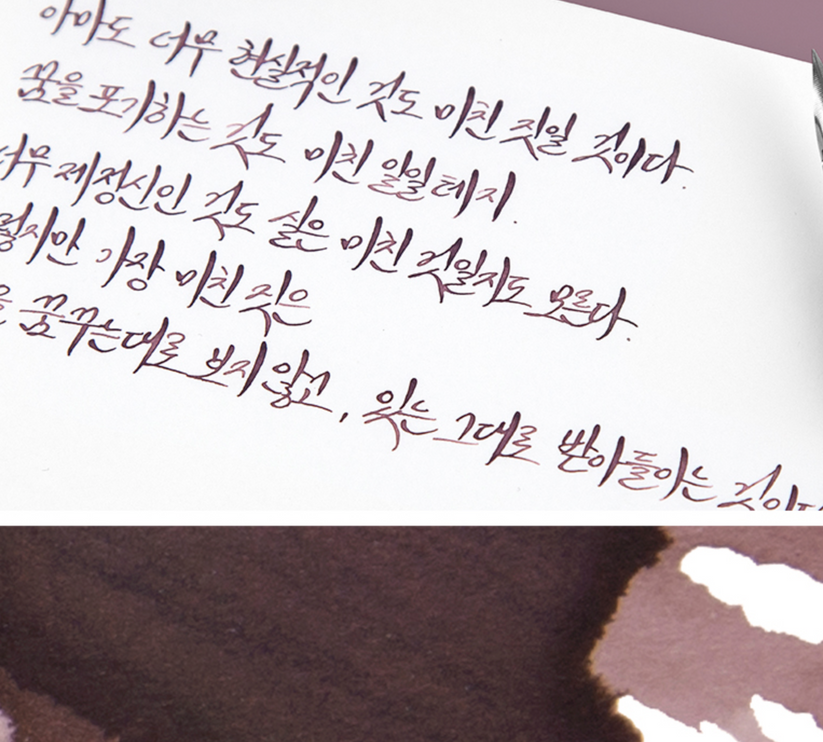 아마도 너무 현실적인 것도 미친 짓일 것이다.
꿈을 포기하는 것도 미친 일일테지.
너무 제정신인 것도 실은 미친 것일지도 모른다.
렇지만 가장 미친 짓은
을 꿈꾸는대로 보지 않고, 있는 그대로 받아들이는 것이다